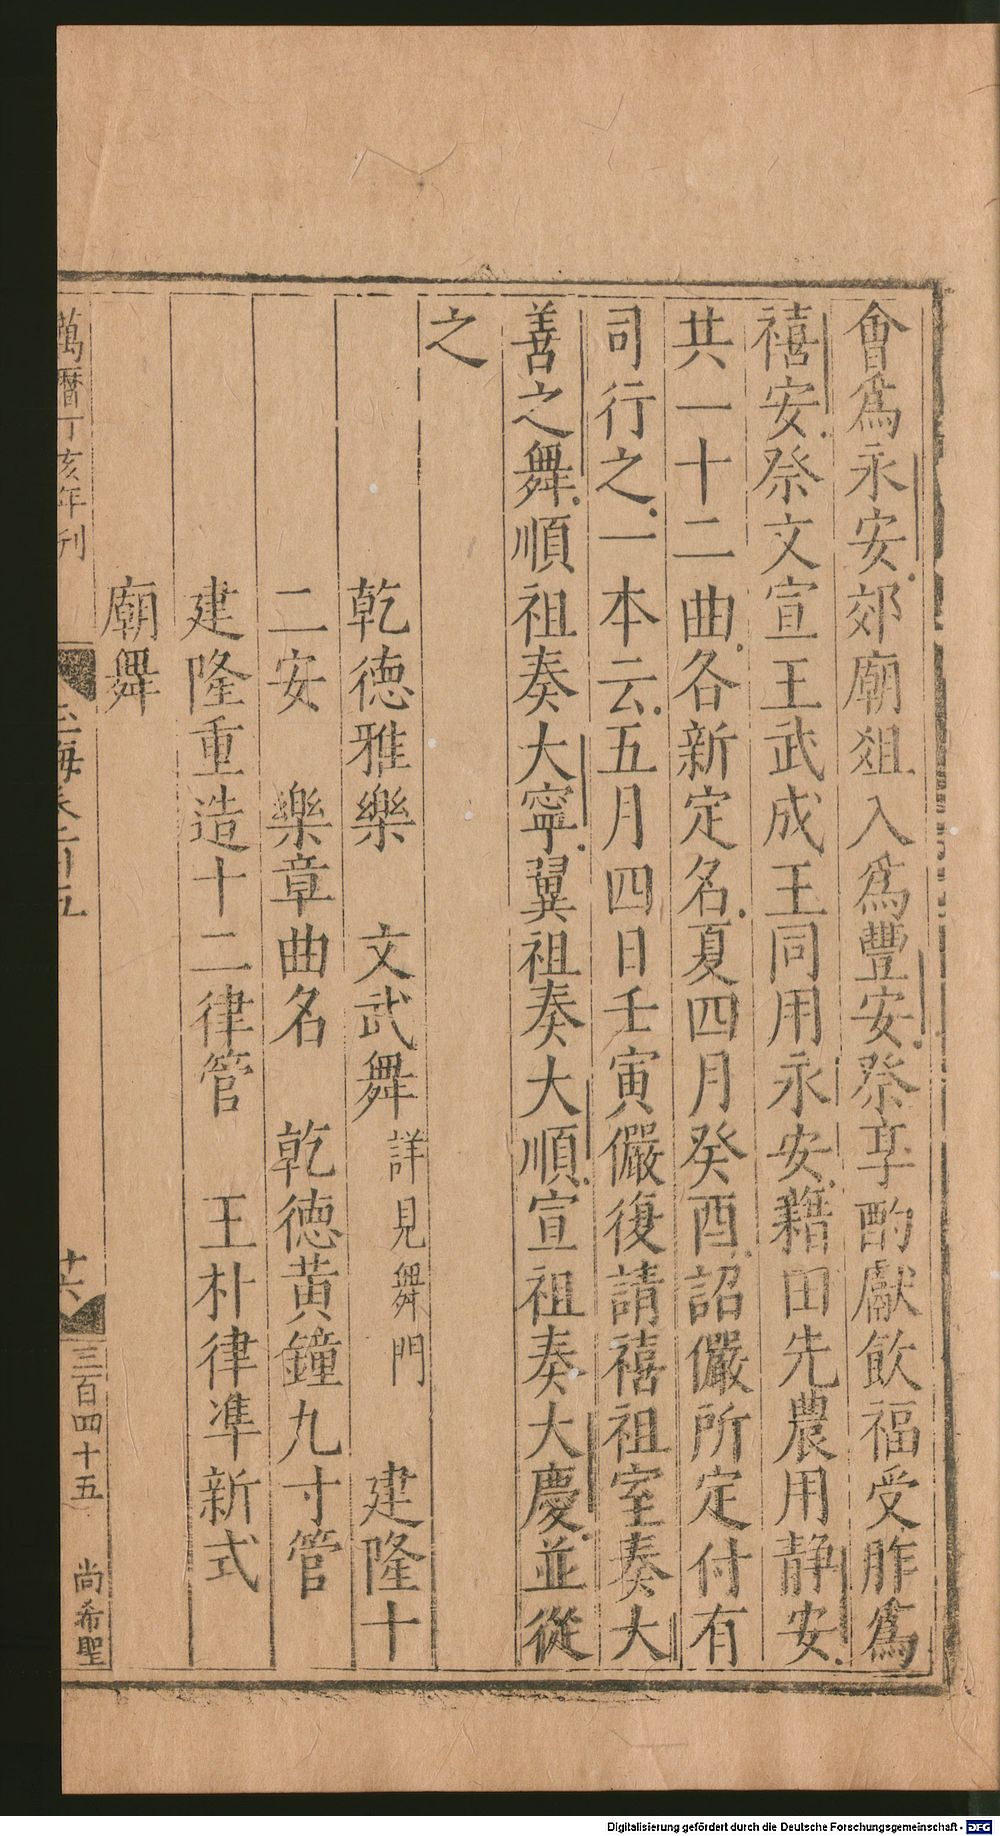 會為永安郊廟俎入為豐安祭享酌獻飲福受胙為
禧安祭文宣王武成王同用永安藉田先農用静安
共一十二曲各新定名夏四月癸酉詔儼所定付有
司行之一本云五月四日壬寅儼復請禧祖室奏大
善之舞順祖奏大寧翼祖奏大順宣祖奏大慶並從
之
乾德雅樂　文武舞詳見舞門　建隆十
二安　樂章曲名　乾德黃鐘九寸管
建隆重造十二律管　王朴律準新式
廟舞
萬曆丁亥年刊
玉海卷
十六
三百四十五　尚希聖
Digitalisierung gefördert durch die Deutsche Forschungsgemeinschaft - DFG